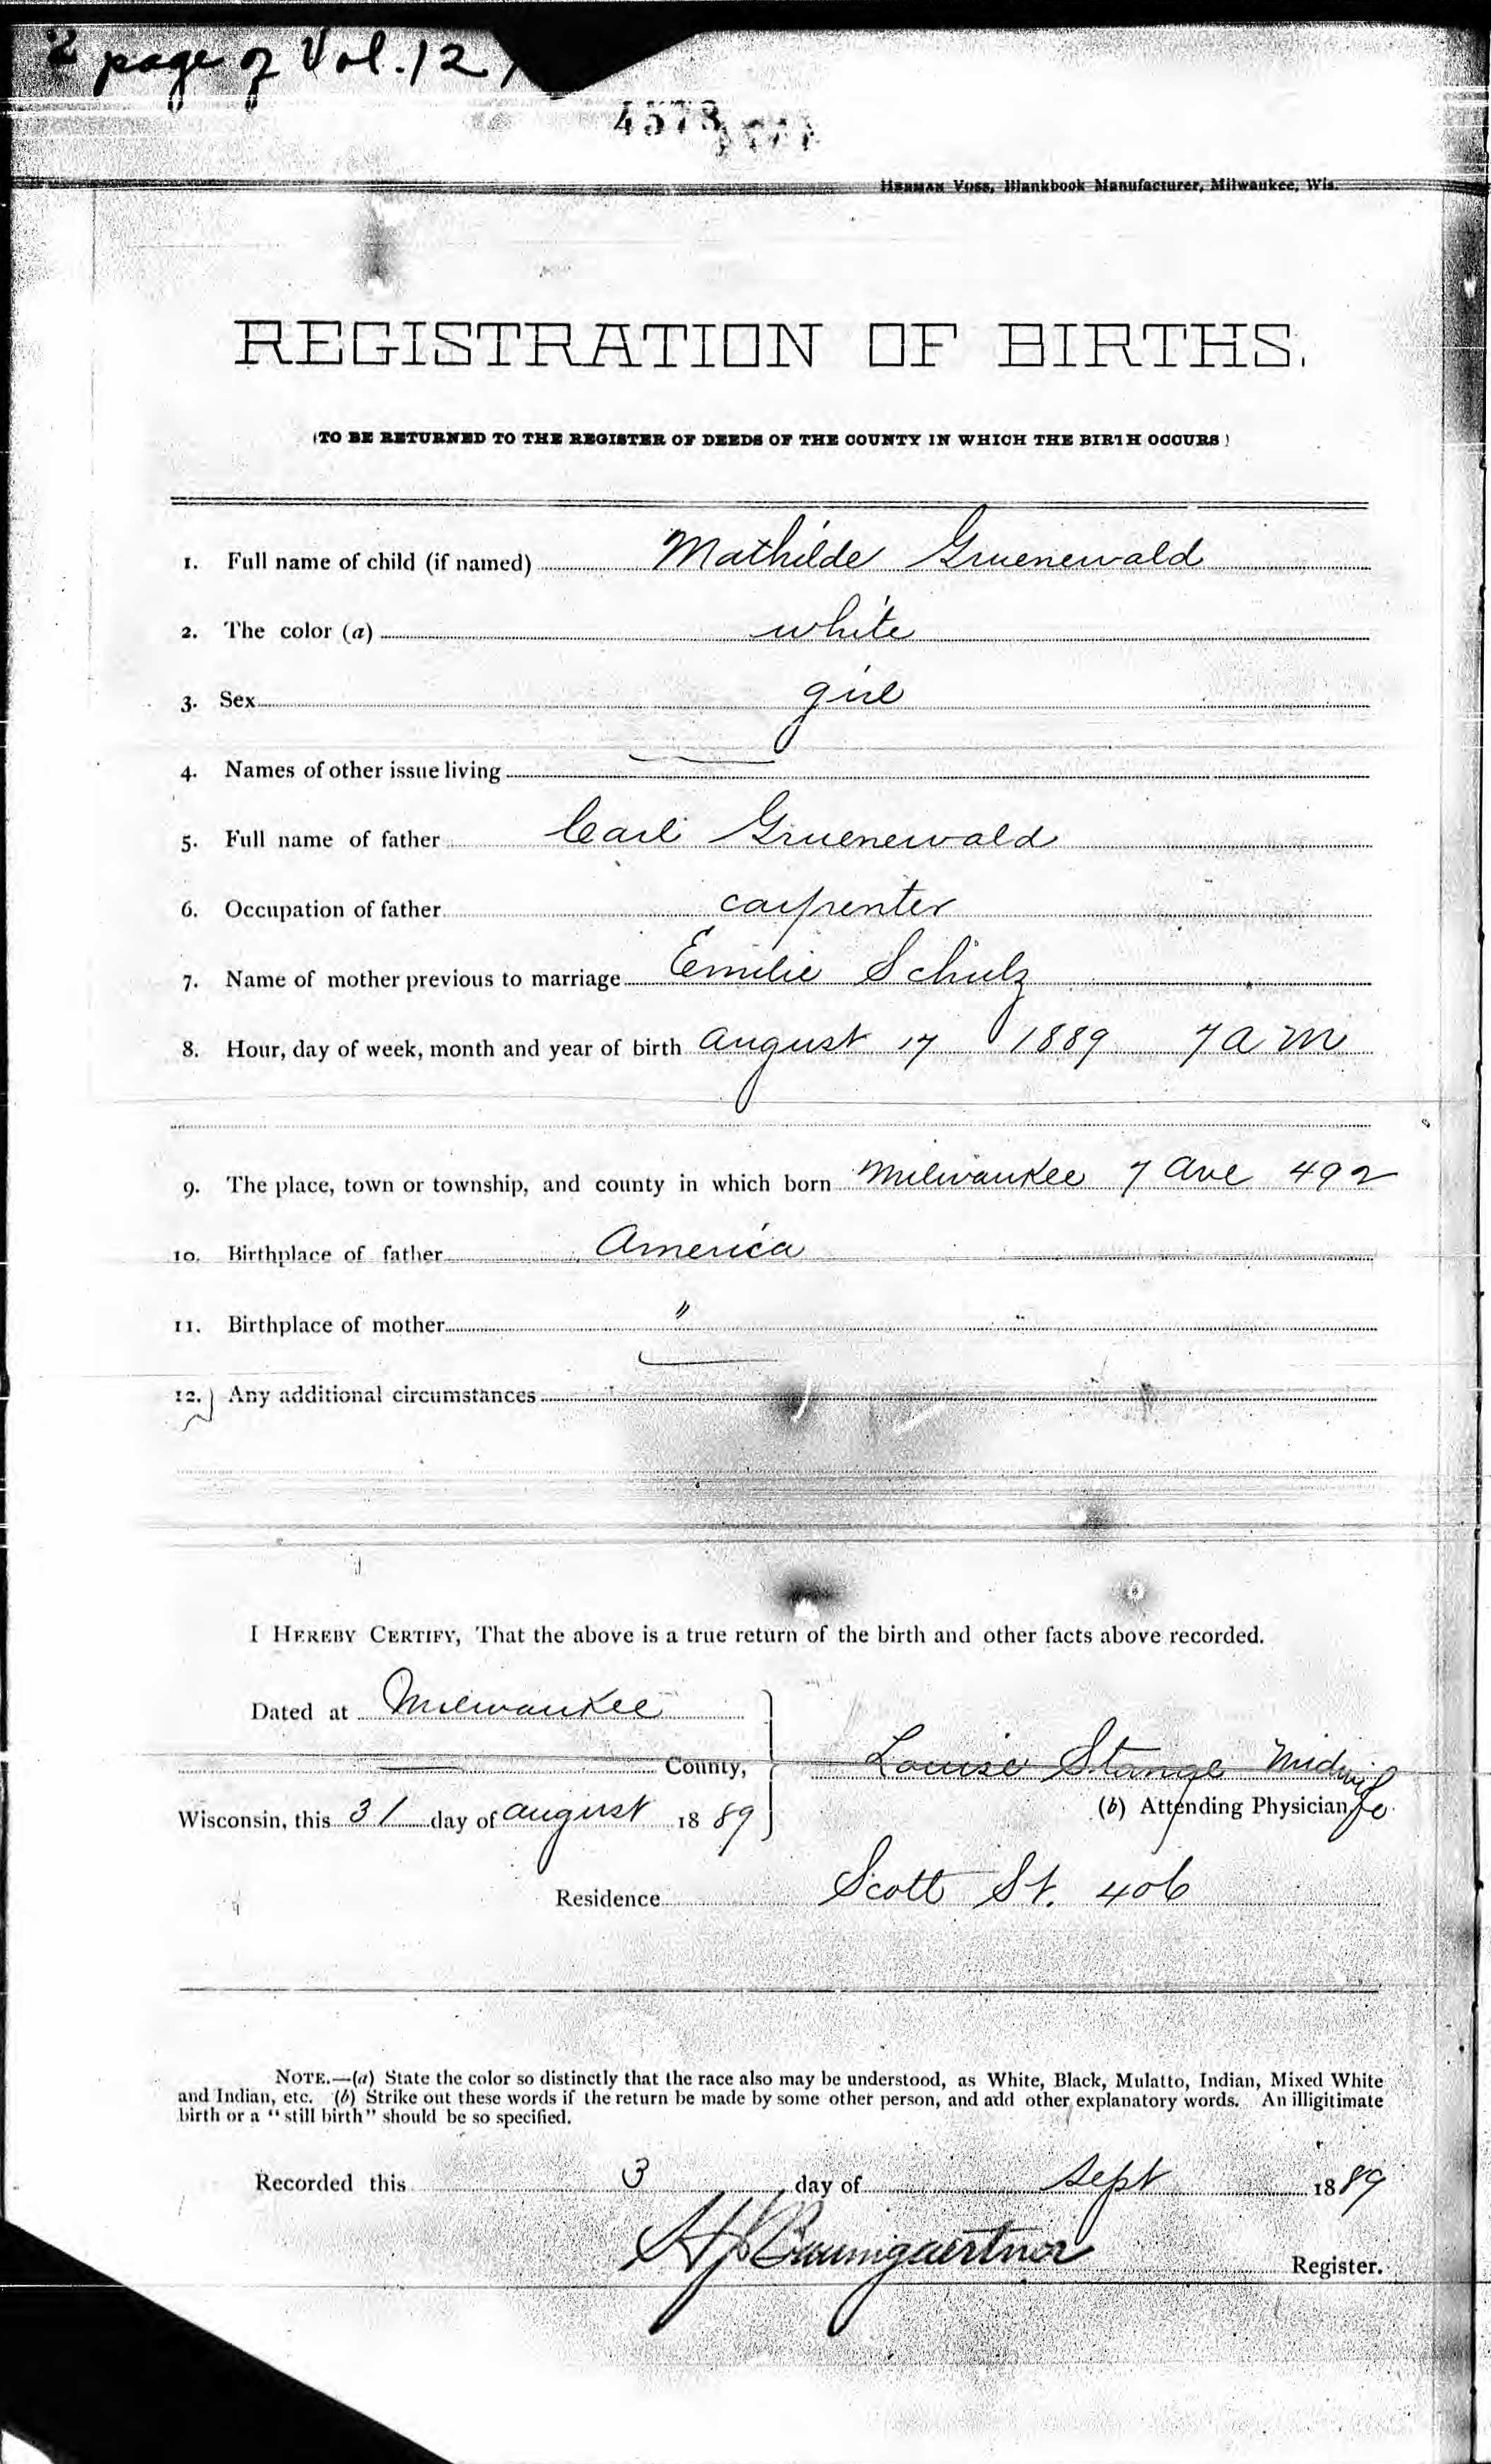 2 page of Vol. 12
4573
HERMAN VOSS, Blankbook Manufacturer, Milwaukee, Wis.
REGISTRATION OF BIRTHS.
(TO BE RETURNED TO THE REGISTER OF DEEDS OF THE COUNTY IN WHICH THE BIRTH OCCURS)
1. Full name of child (if named) Mathilde Gruenewald
2. The color (a) white
3. Sex girl
4. Names of other issue living
5. Full name of father Carl Gruenewald
6. Occupation of father carpenter
7. Name of mother previous to marriage Emilie Schulz
8. Hour, day of week, month and year of birth August 17 1889 7 A M
9. The place, town or township, and county in which born Milwaukee 7 Ave 492
10. Birthplace of father America
11. Birthplace of mother "
12. Any additional circumstances
I HEREBY CERTIFY, That the above is a true return of the birth and other facts above recorded.
Dated at Milwaukee
County, Louise Stange Midwife
(b) Attending Physician
Wisconsin, this 31 day of August 1889
Residence Scott St. 406
NOTE.—(a) State the color so distinctly that the race also may be understood, as White, Black, Mulatto, Indian, Mixed White
and Indian, etc. (b) Strike out these words if the return be made by some other person, and add other explanatory words. An illigitimate
birth or a "still birth" should be so specified.
Recorded this 3 day of Sept 1889
Baumgaertner Register.